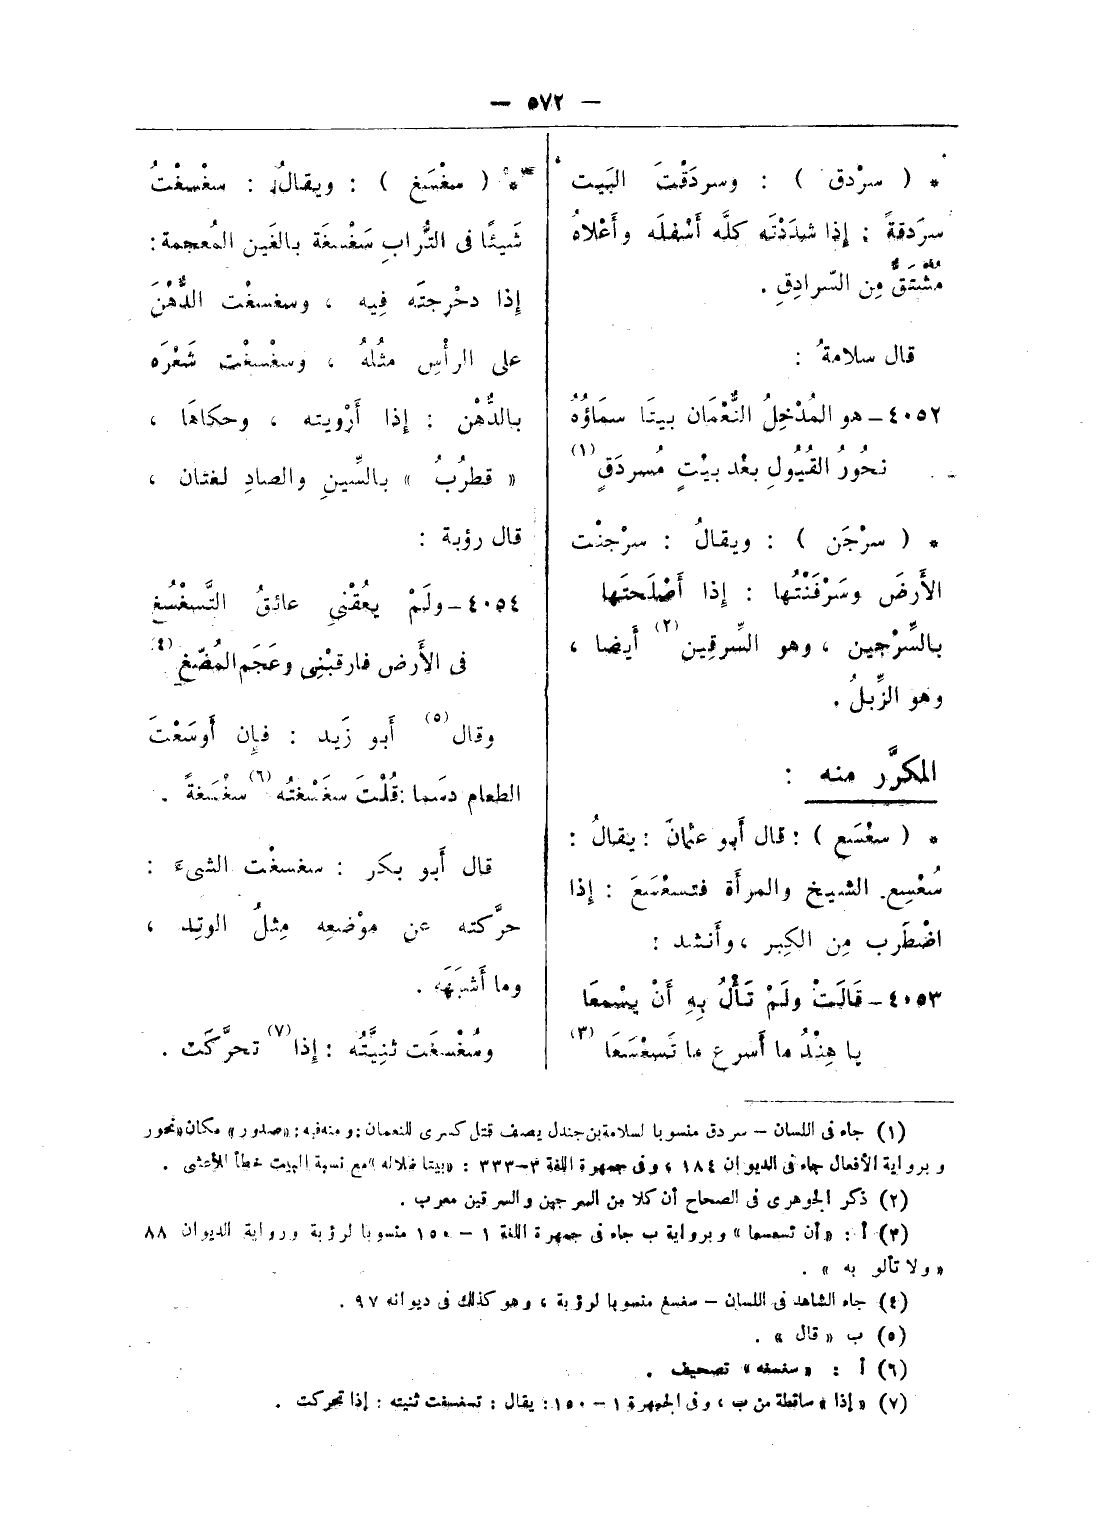 — ٥٧٢ —
* ( سرْدق ) : وسردَقْتَ البَيت
سرَدقةً : إذا شدَدْتَه كلَّه أَسْفلَه وأَعْلاهُ
مُشْتَقٌّ مِن السّرادِقِ .
قال سلامةُ :
٤٠٥٢ـ هو المُدْخِلُ النُّعْمَان بيتًا سمَاؤُهُ
نحُورُ الفُيُولِ بعْد بيْتٍ مُسردَقٍ (١)
* ( سرْجَن ) : ويقالُ : سرْجنْت
الأَرضَ وسَرْقَنْتُها : إذا أَصْلَحتَها
بالسِّرْجين ، وهو السِّرقِين (٢) أَيضا ،
وهو الزِّبلُ .
المكرَّر منه :
* ( سغْسَع ) : قال أَبو عثمانَ : يقالُ :
سُغْسِع الشيخ والمرأَة فتسغْسَعَ : إذا
اضْطَرب مِن الكِبر ، وأَنشد :
٤٠٥٣ـ قَالَتْ ولَمْ تَأْلُ بِهِ أَنْ يسْمعَا
يا هِنْدُ ما أَسرع ما تَسغْسَعَا (٣)
* ( سغْسَغ ) : ويقالُ : سغْسغْتُ
شَيئًا فى التُّرابِ سَغْسغَة بالغَين المُعجمة :
إذا دحْرجتَه فِيه ، وسغسغْت الدُّهْنَ
على الرأْسِ مثْلهُ ، وسغْسغْت شَعْرَه
بالدُّهْن : إذا أَرْويته ، وحكاهَا ،
« قطرُبُ » بالسِّينِ والصادِ لغتان ،
قال رؤبة :
٤٠٥٤ـ ولَمْ يعُقْنِي عائِقُ التَّسغْسُغِ
فى الأَرض فارقبْنِى وعَجَم المُضّغِ (٤)
وقال (٥) أَبو زَيد : فإِن أَوسَعْتَ
الطعام دسَما : قُلْتَ سغَسْغتُه (٦) سغْسَغةً .
قال أَبو بكر : سغسغْت الشىءَ :
حرَّكته عن موْضعِه مِثلُ الوتِد ،
وما أَشبَهَه .
وسُغْسغَت ثنِيَّتُه : إذا (٧) تحرَّكَت .
(١) جاء فى اللسان – سردق منسوبا لسلامة بن جندل يصف قتل كسرى للنعمان : ومنه فيه : «صدور» مكان «نحور
وبرواية الأفعال جاء فى الديوان ١٨٤ ، وفى جمهرة اللغة ٣–٣٣٣ : «بيتا ظلاله» مع نسبة البيت خطأ للأعشى .
(٢) ذكر الجوهرى فى الصحاح أن كلا من السرجين والسرقين معرب .
(٣) أ : «أن تسمعا» وبرواية ب جاء فى جمهرة اللغة ١ – ١٥٠ منسوبا لرؤبة ورواية الديوان ٨٨
«ولا تألو به » .
(٤) جاء الشاهد فى اللسان – سغسغ منسوبا لرؤبة ، وهو كذلك فى ديوانه ٩٧ .
(٥) ب « قال » .
(٦) أ : « سغسغه » تصحيف .
(٧) « إذا » ساقطة من ب ، وفى الجمهرة ١ – ١٥٠ : يقال : تسغسغت ثنيته : إذا تحركت .